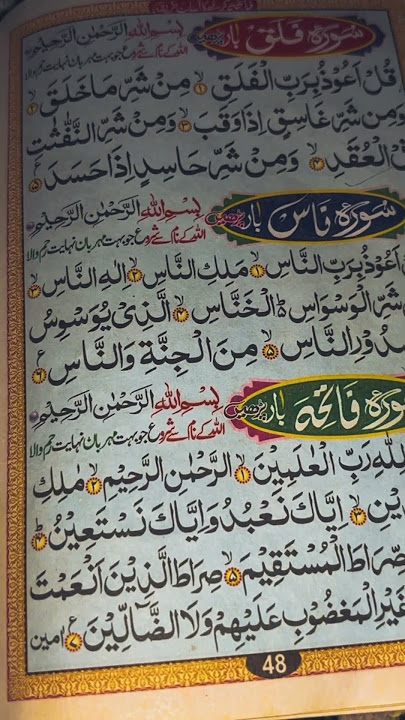 سورہ فلق بار پڑھیں بِسْمِ اللهِ الرَّحْمٰنِ الرَّحِيْمِ
اللہ کے نام سے شروع جو بہت مہربان نہایت رحم والا
قُلْ اَعُوْذُ بِرَبِّ الْفَلَقِ ۱ مِنْ شَرِّ مَا خَلَقَ ۲
وَمِنْ شَرِّ غَاسِقٍ اِذَا وَقَبَ ۳ وَمِنْ شَرِّ النَّفّٰثٰتِ
الْعُقَدِ ۴ وَمِنْ شَرِّ حَاسِدٍ اِذَا حَسَدَ ۵
سورہ ناس بار پڑھیں بِسْمِ اللهِ الرَّحْمٰنِ الرَّحِيْمِ
اللہ کے نام سے شروع جو بہت مہربان نہایت رحم والا
اَعُوْذُ بِرَبِّ النَّاسِ ۱ مَلِكِ النَّاسِ ۲ اِلٰهِ النَّاسِ ۳
شَرِّ الْوَسْوَاسِ ۵ الْخَنَّاسِ ۴ الَّذِيْ يُوَسْوِسُ
صُدُوْرِ النَّاسِ ۵ مِنَ الْجِنَّةِ وَالنَّاسِ ۶
سورہ فاتحہ بار پڑھیں بِسْمِ اللهِ الرَّحْمٰنِ الرَّحِيْمِ
اللہ کے نام سے شروع جو بہت مہربان نہایت رحم والا
لِلّٰهِ رَبِّ الْعٰلَمِيْنَ ۱ الرَّحْمٰنِ الرَّحِيْمِ ۲ مٰلِكِ
الدِّيْنِ ۳ اِيَّاكَ نَعْبُدُ وَاِيَّاكَ نَسْتَعِيْنُ ۴
الصِّرَاطَ الْمُسْتَقِيْمَ ۵ صِرَاطَ الَّذِيْنَ اَنْعَمْتَ
غَيْرِ الْمَغْضُوْبِ عَلَيْهِمْ وَلَا الضَّآلِّيْنَ ۷ اٰمين
48